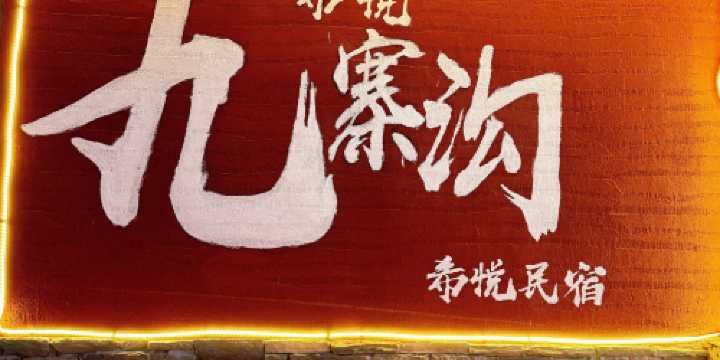 希悦
九寨沟
希悦民宿